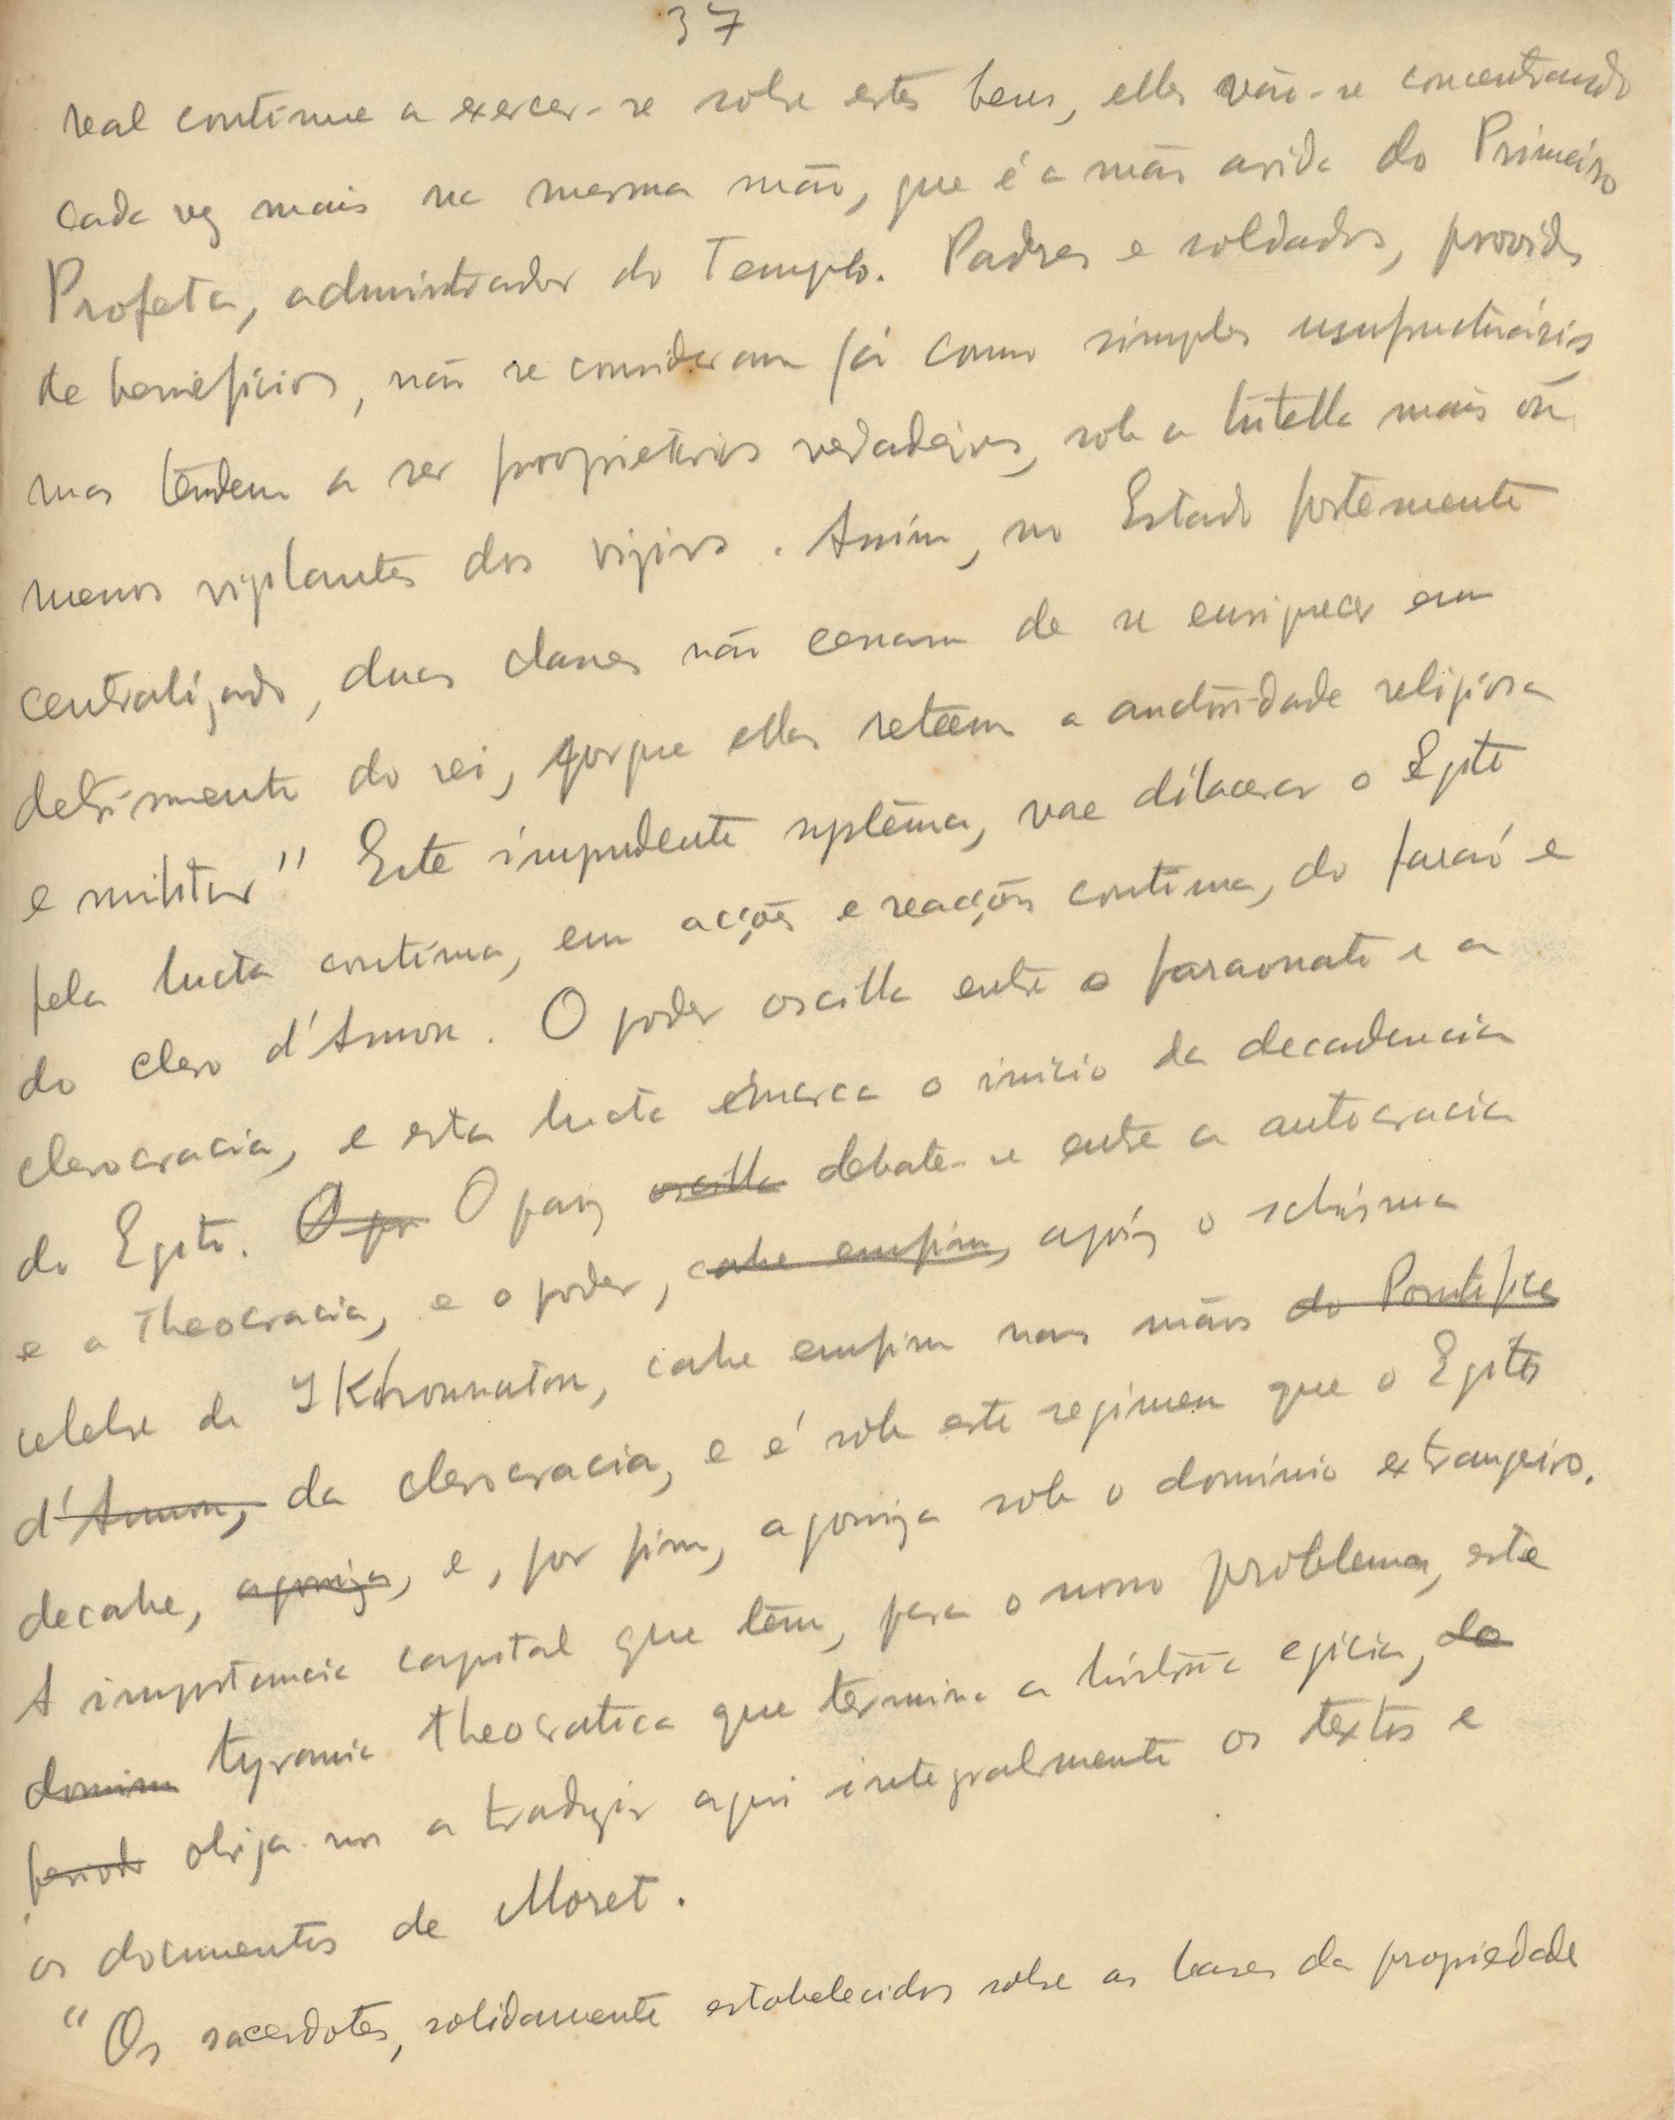 37
real continue a exercer-se sobre estes bens, elles vão-se concentrando
cada vez mais na mesma mão, que é a mão avida do Primeiro
Profeta, administrador do Templo. Padres e soldados, providos
de beneficios, não se consideram já como simples usufructuários
mas tendem a ser proprietários verdadeiros, sob a tutella mais ou
menos vigilantes dos vizires. Assim, no Estado fortemente
centralizado, duas classes não cessam de se enriquecer em
detrimento do rei, porque ellas reteem a auctoridade religiosa
e militar" Este imprudente systema, vae dilacerar o Egito
pela lucta continua, em acções e reacções continua, do faraó e
do clero d'Amon. O poder oscilla entre o faraonato e a
clerocracia, e esta lucta marca o inicio da decadencia
do Egito. O po O paiz oscilla debate-se entre a autocracia
e a Theocracia, e o poder, cahe emfim, após o schisma
celebre de IKhounaton, cahe emfim nas mãos do Pontifice
d'Amon, da clerocracia, e é sob este regimen que o Egito
decahe, agoniza, e, por fim, agoniza sob o dominio extrangeiro.
A importancia capital que têm, para o nosso problema, esta
domin tyrania theocratica que termina a história egicia, do
periodo obriga-nos a traduzir aqui integralmente os textos e
os documentos de Moret.
"Os sacerdotes, solidamente estabelecidos sobre as bases da propriedade